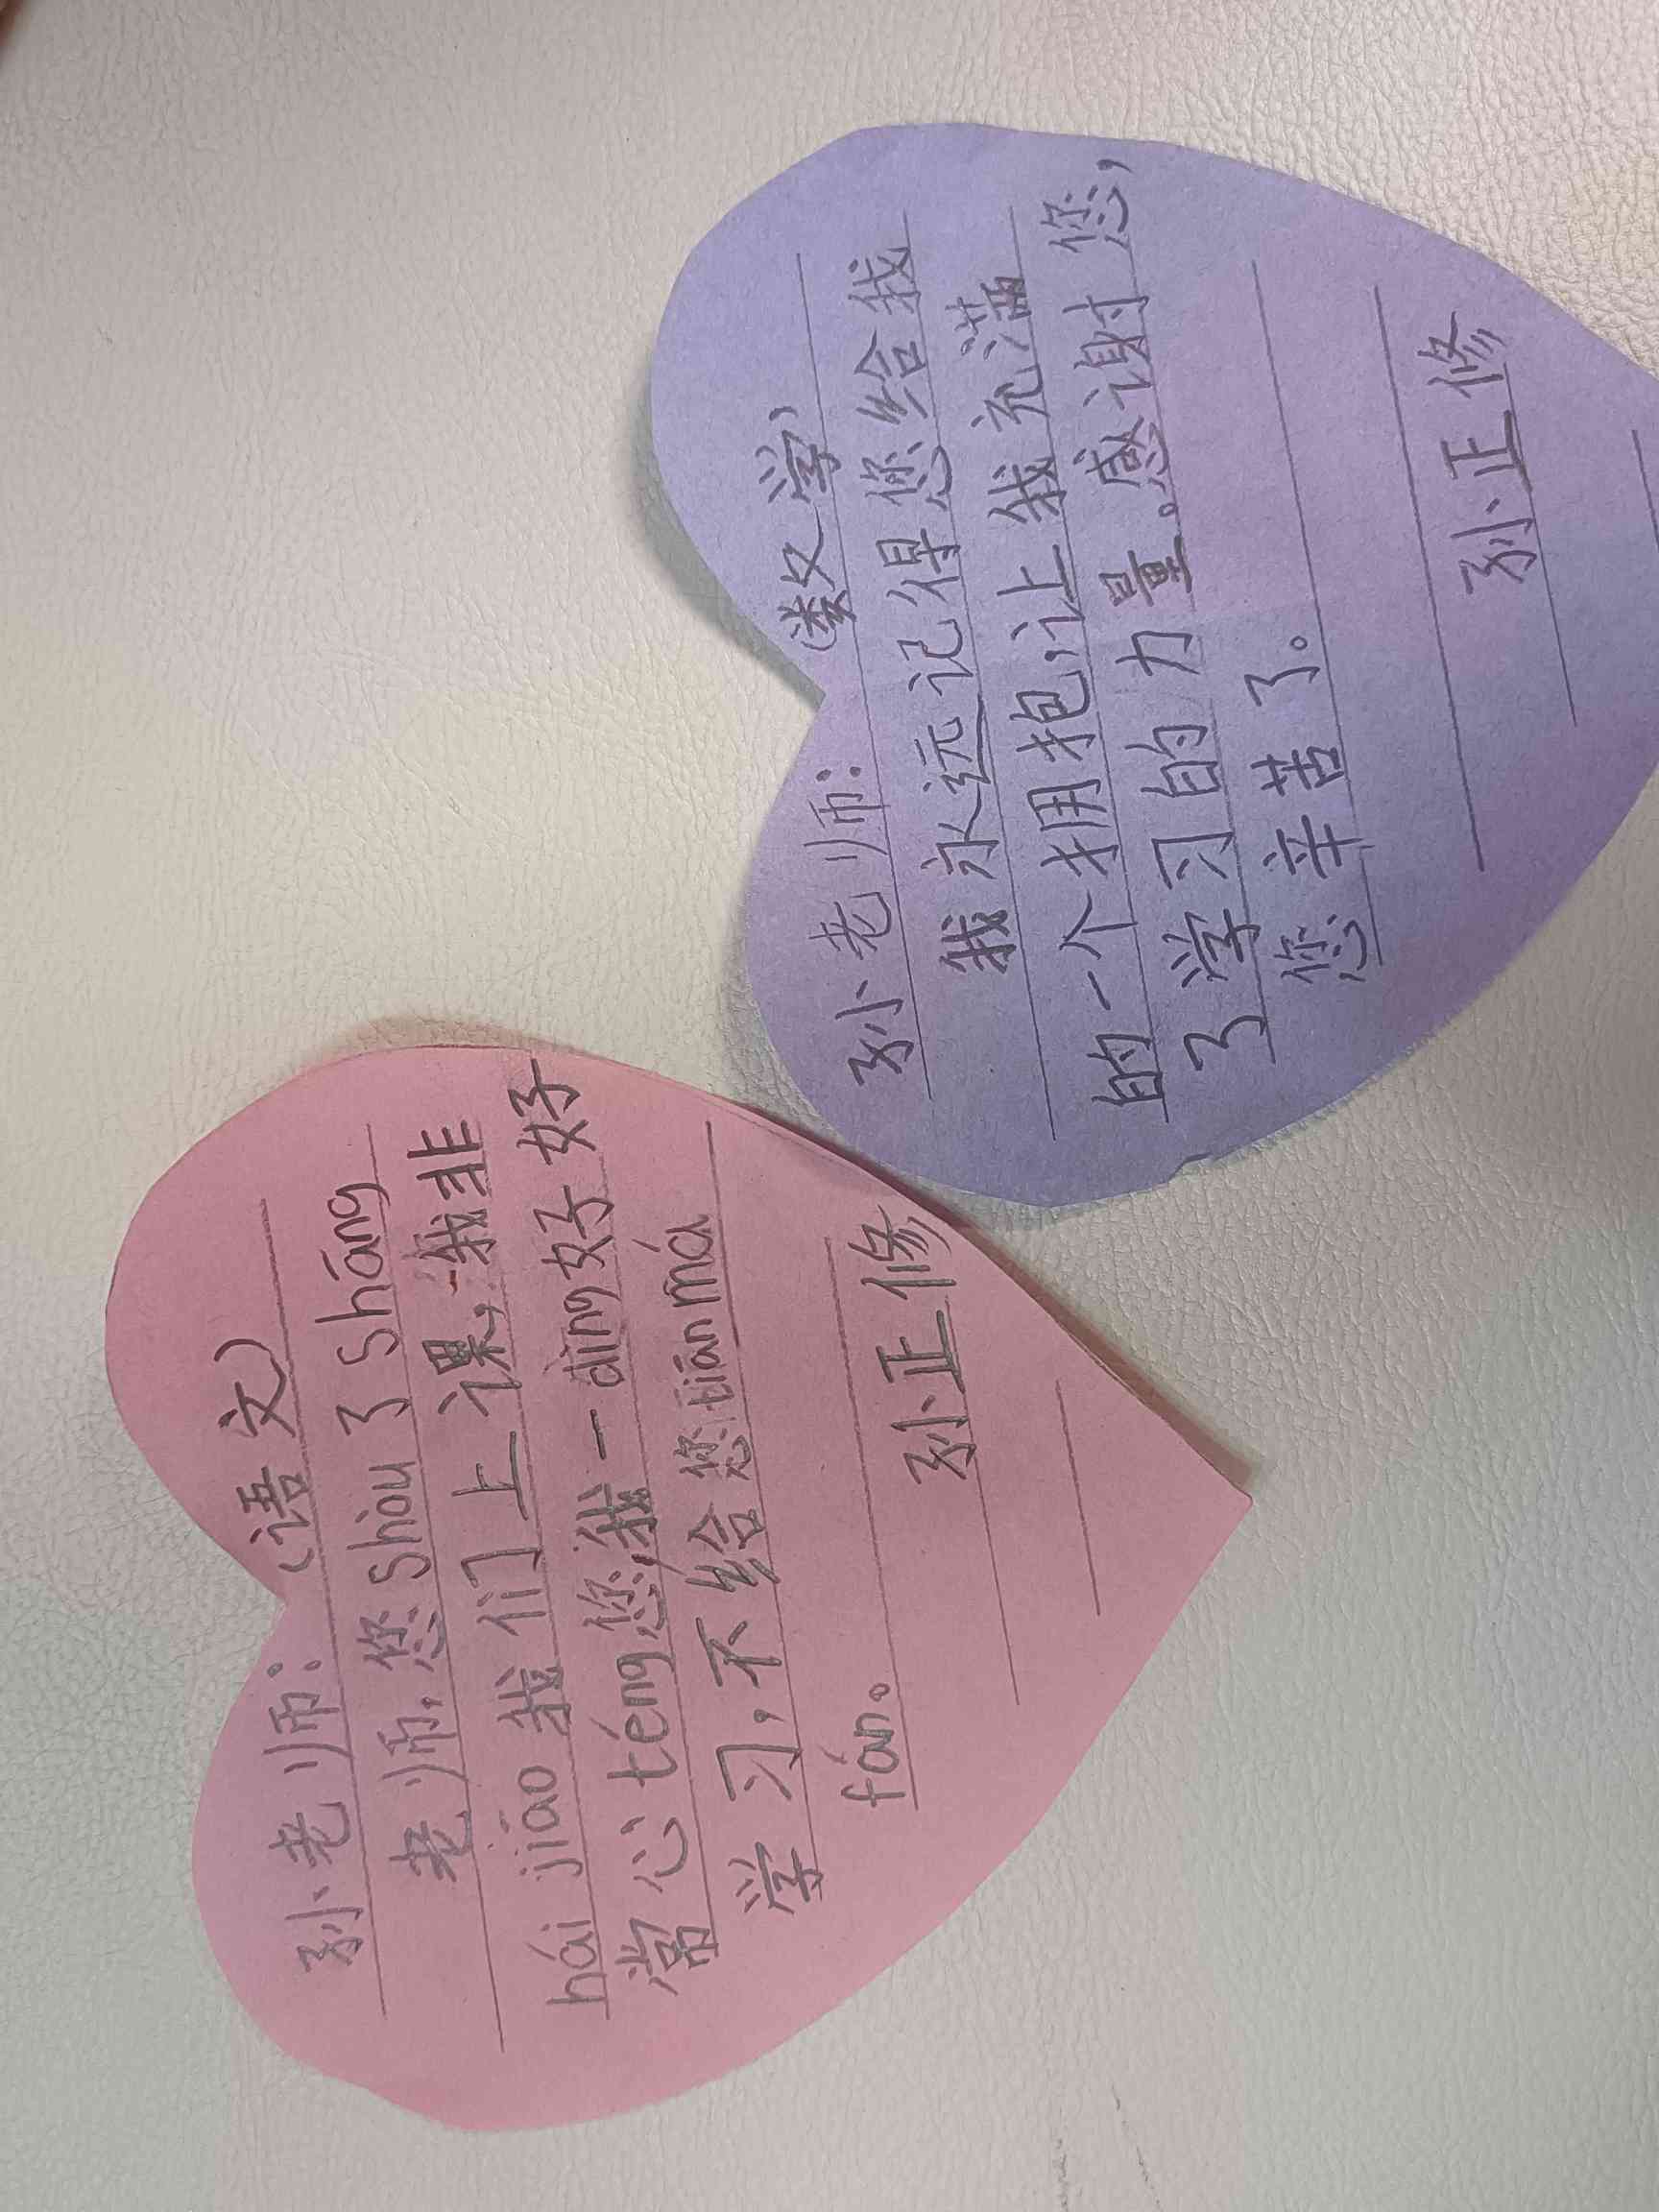 孙老师：（语文）
老师，您shòu了shāng
hái jiāo我们上课，我非
常心téng您，我一dìng好好
学习，不给您tiān má
fán。
孙正修
孙老师：（数学）
我永远记得您给我
的一个拥抱，让我充满
了学习的力量。感谢您，
您辛苦了。
孙正修